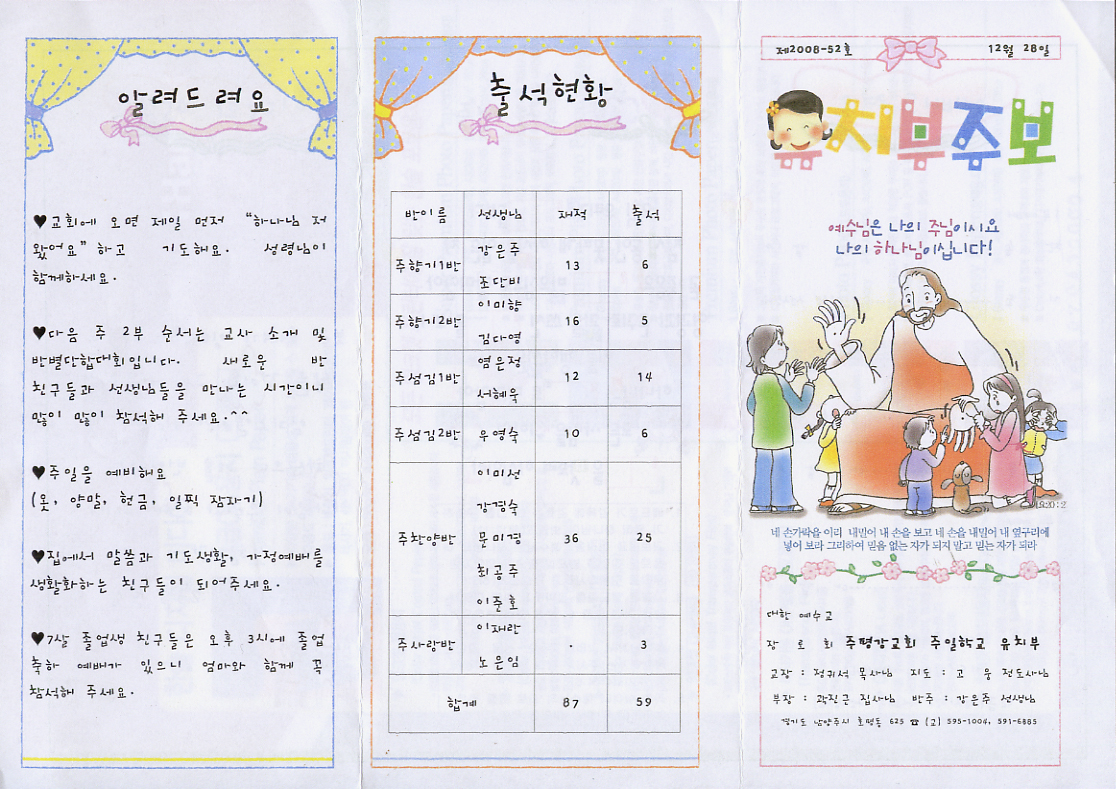 알려드려요
♥교회에 오면 제일 먼저 "하나님 저
왔어요" 하고 기도해요. 성령님이
함께하세요.
♥다음 주 2부 순서는 교사 소개 및
반별단합대회입니다. 새로운 반
친구들과 선생님들을 만나는 시간이니
많이 많이 참석해 주세요.^^
♥주일을 예비해요
(옷, 양말, 헌금, 일찍 잠자기)
♥집에서 말씀과 기도생활, 가정예배를
생활화하는 친구들이 되어주세요.
♥7살 졸업생 친구들은 오후 3시에 졸업
축하 예배가 있으니 엄마와 함께 꼭
참석해 주세요.
출석현황
반이름 선생님 재적 출석
주향기1반 강은주 조단비 13 6
주향기2반 이미향 김다영 16 5
주섬김1반 염은정 서혜욱 12 14
주섬김2반 우영숙 10 6
주찬양반 이미선 강경숙 문미경 최공주 이준호 36 25
주사랑반 이재란 노은임 . 3
합계 87 59
제2008-52호 12월 28일
유치부주보
예수님은 나의 주님이시요
나의 하나님이십니다!
네 손가락을 이리 내밀어 내 손을 보고 네 손을 내밀어 내 옆구리에
넣어 보라 그리하여 믿음 없는 자가 되지 말고 믿는 자가 되라
대한 예수교
장 로 회 주평강교회 주일학교 유치부
교장 : 정귀석 목사님 지도 : 고 웅 전도사님
부장 : 곽진근 집사님 반주 : 강은주 선생님
경기도 남양주시 호평동 625 ☎ (교) 595-1004, 591-6885